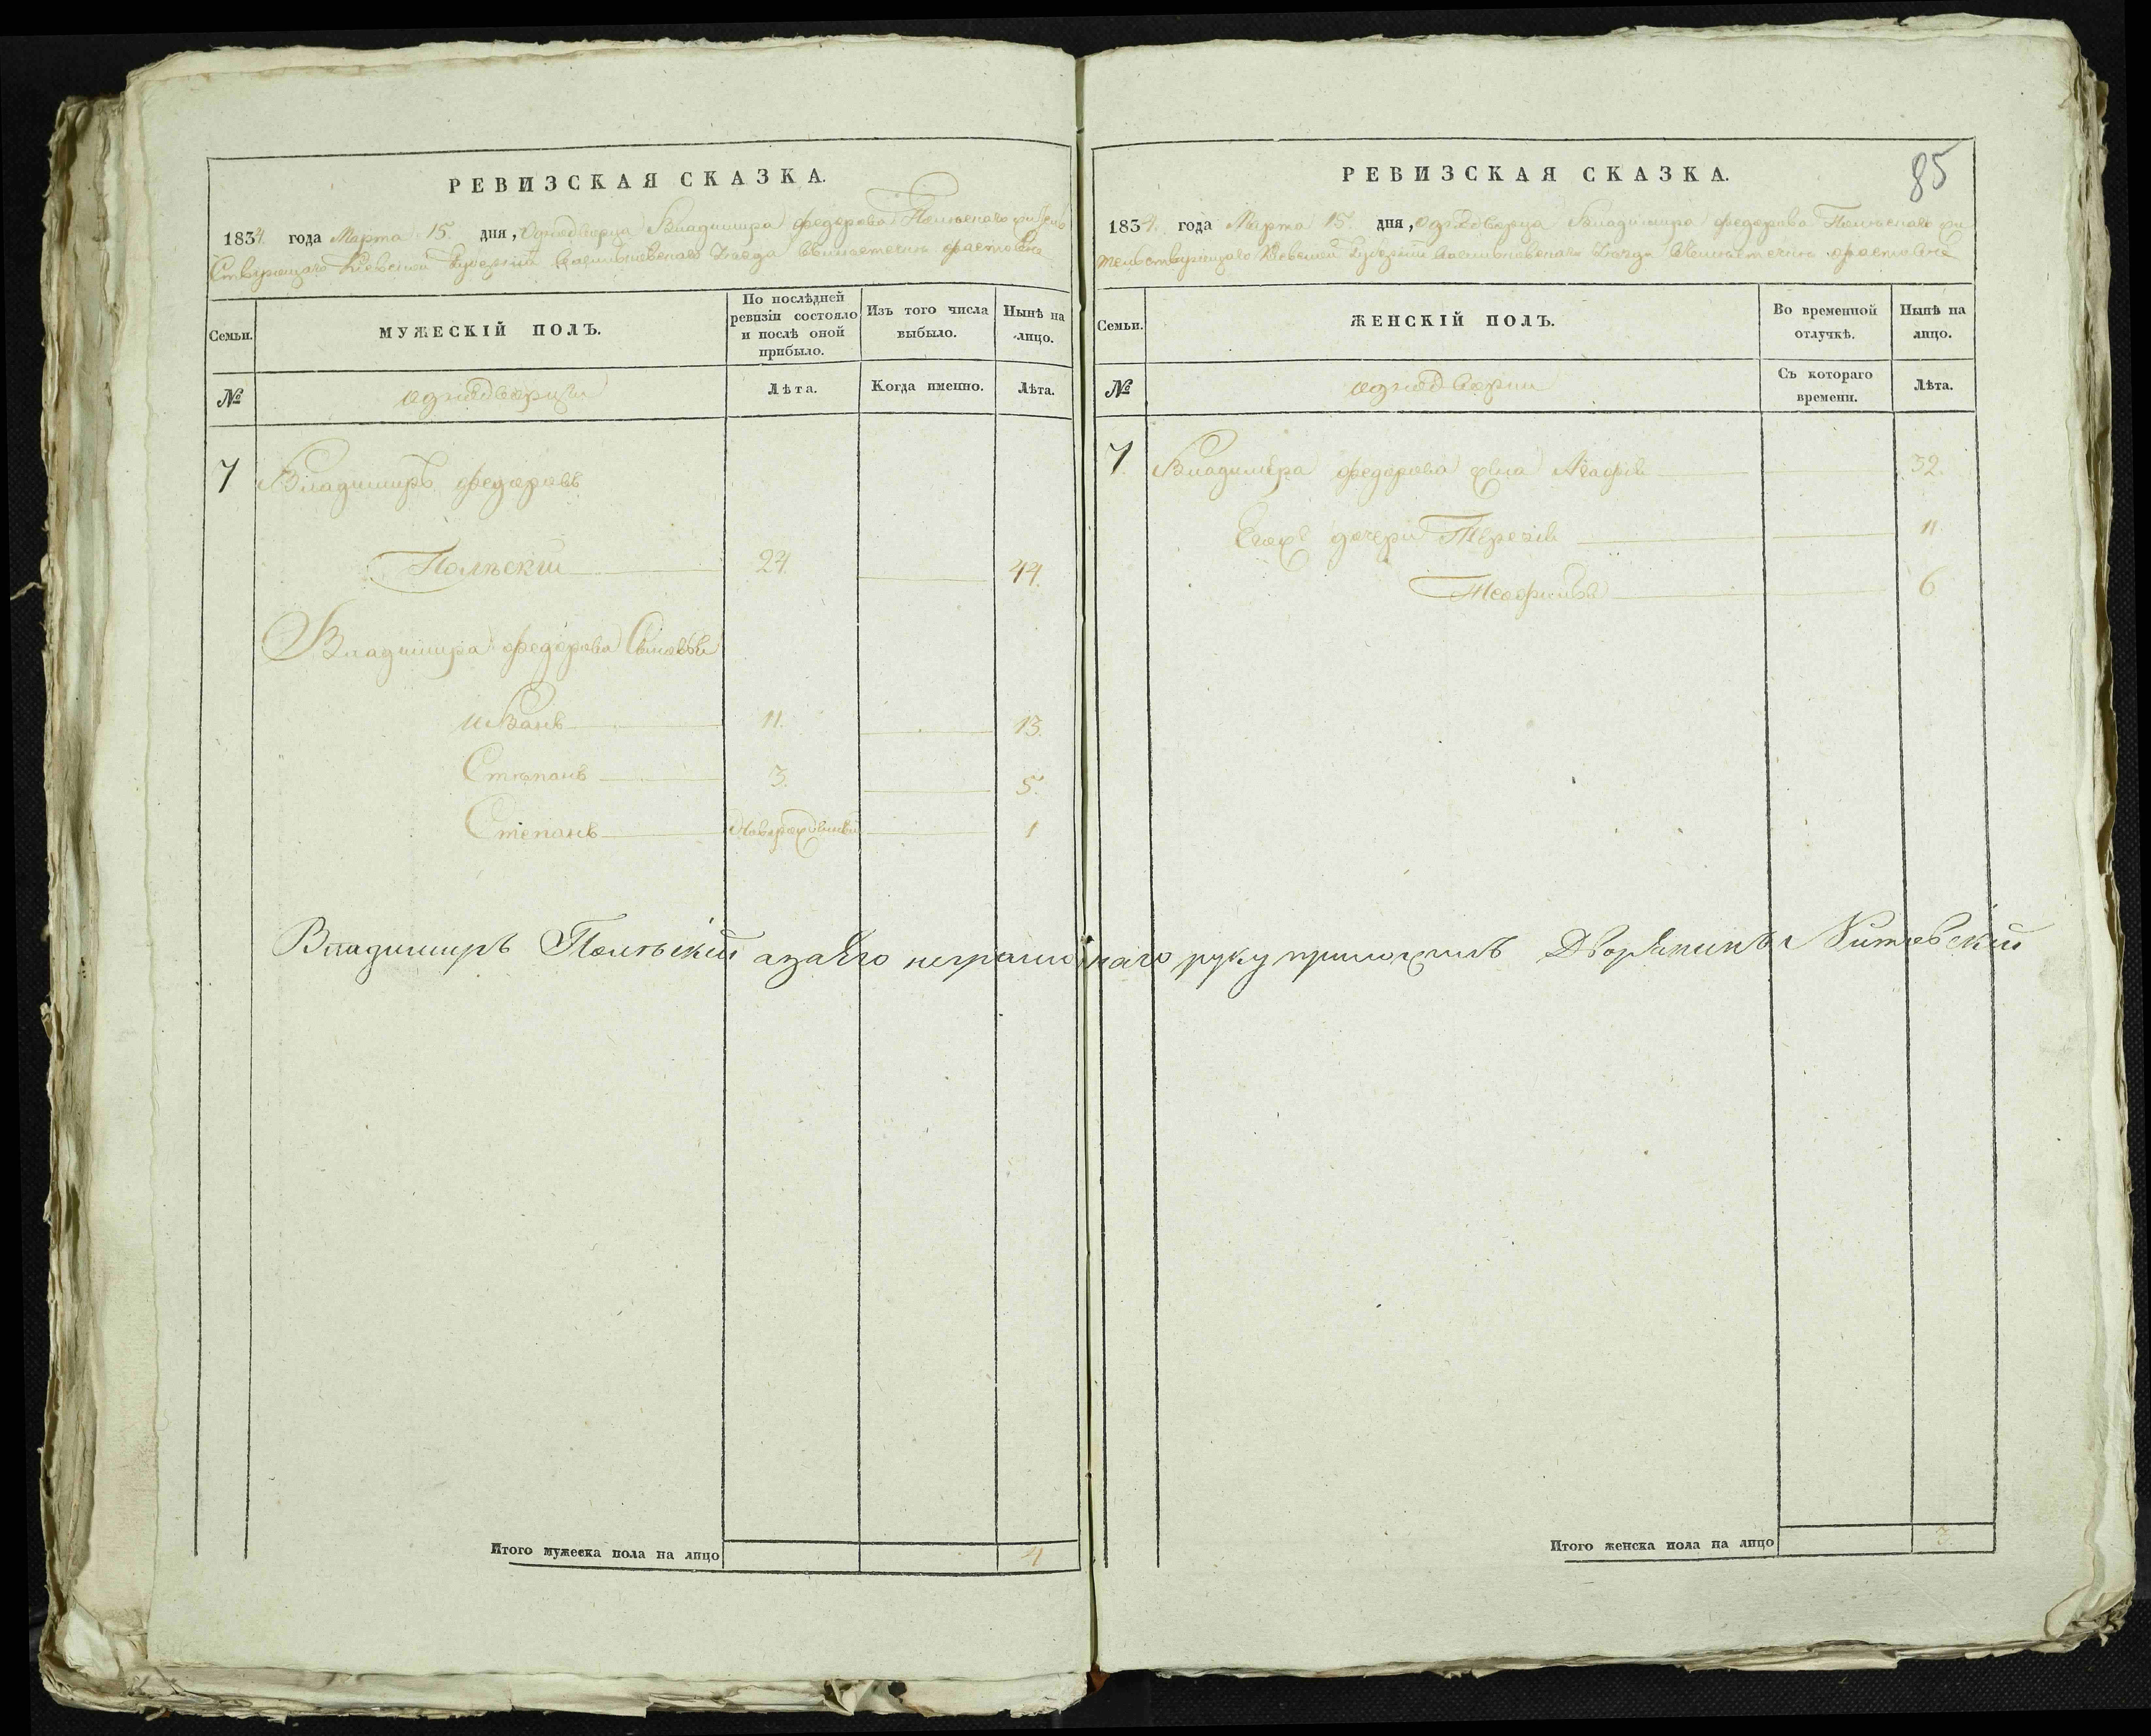 РЕВИЗСКАЯ СКАЗКА.
1834 года Марта 15 дня, Однодворца Владимира Федорова Польскаго жител
ствующаго Кіевской Губерніи Васильковскаго Уезда
Семьи.
МУЖЕСКІЙ ПОЛЪ.
По послѣдней ревизіи состояло и послѣ оной прибыло.
Изъ того числа выбыло.
Нынѣ на лицо.
№
однодворцы
Лѣта.
Когда именно.
Лѣта.
7 Владимиръ Федоровъ
Полѣскій 24. 44.
Владимира Федорова Сыновья
Иванъ 11. 13.
Стѣпанъ 3. 5.
Степанъ Новорожденный 1
Итого мужеска пола на лицо 4
85
РЕВИЗСКАЯ СКАЗКА.
1834 года Марта 15 дня, однодворца Владимира Федорова Полѣскаго жи
тельствующаго Кіевской Губерніи Васильковскаго Уезда
Семьи.
ЖЕНСКІЙ ПОЛЪ.
Во временной отлучкѣ.
Нынѣ на лицо.
№
однодворки
Съ котораго времени.
Лѣта.
7. Владимира Федорова жена Агафія 32.
Егоже дочери Терезія 11
Теофила 6
Владимиръ Полѣскій а за его неграмотнаго руку приложилъ Дворянинъ
Итого женска пола на лицо 3